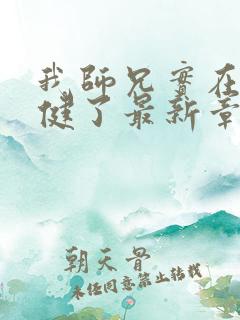 我師兄實在
健了最新章
朝天骨
未經同意禁止轉載